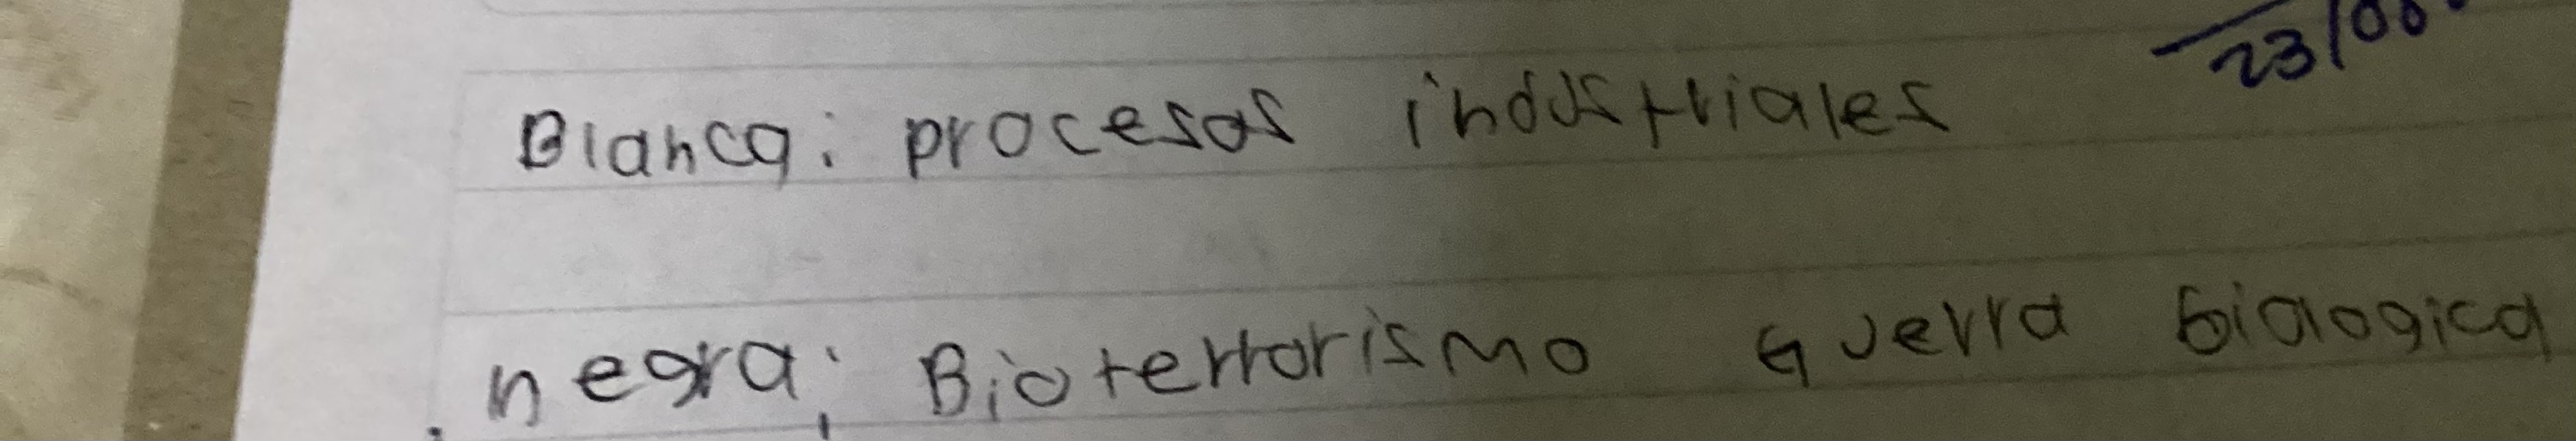 23/00
Blanca: procesos industriales
negra: Bioterrorismo Guerra biologica